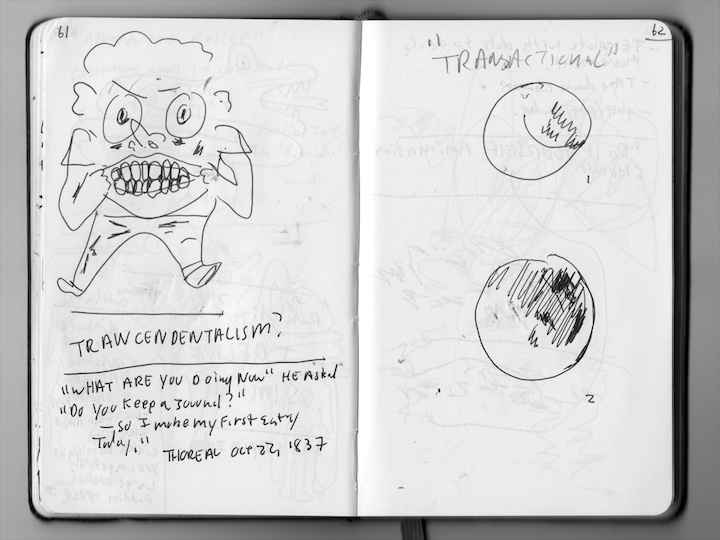 61
TRANCENDENTALISM?
"WHAT ARE YOU DOing NOW" HE ASked
"Do You keep a Jounal?"
—so I make my First Entry
Today."
THOREAU Oct 22, 1837
62
"TRANSACTIONAL"
1
2